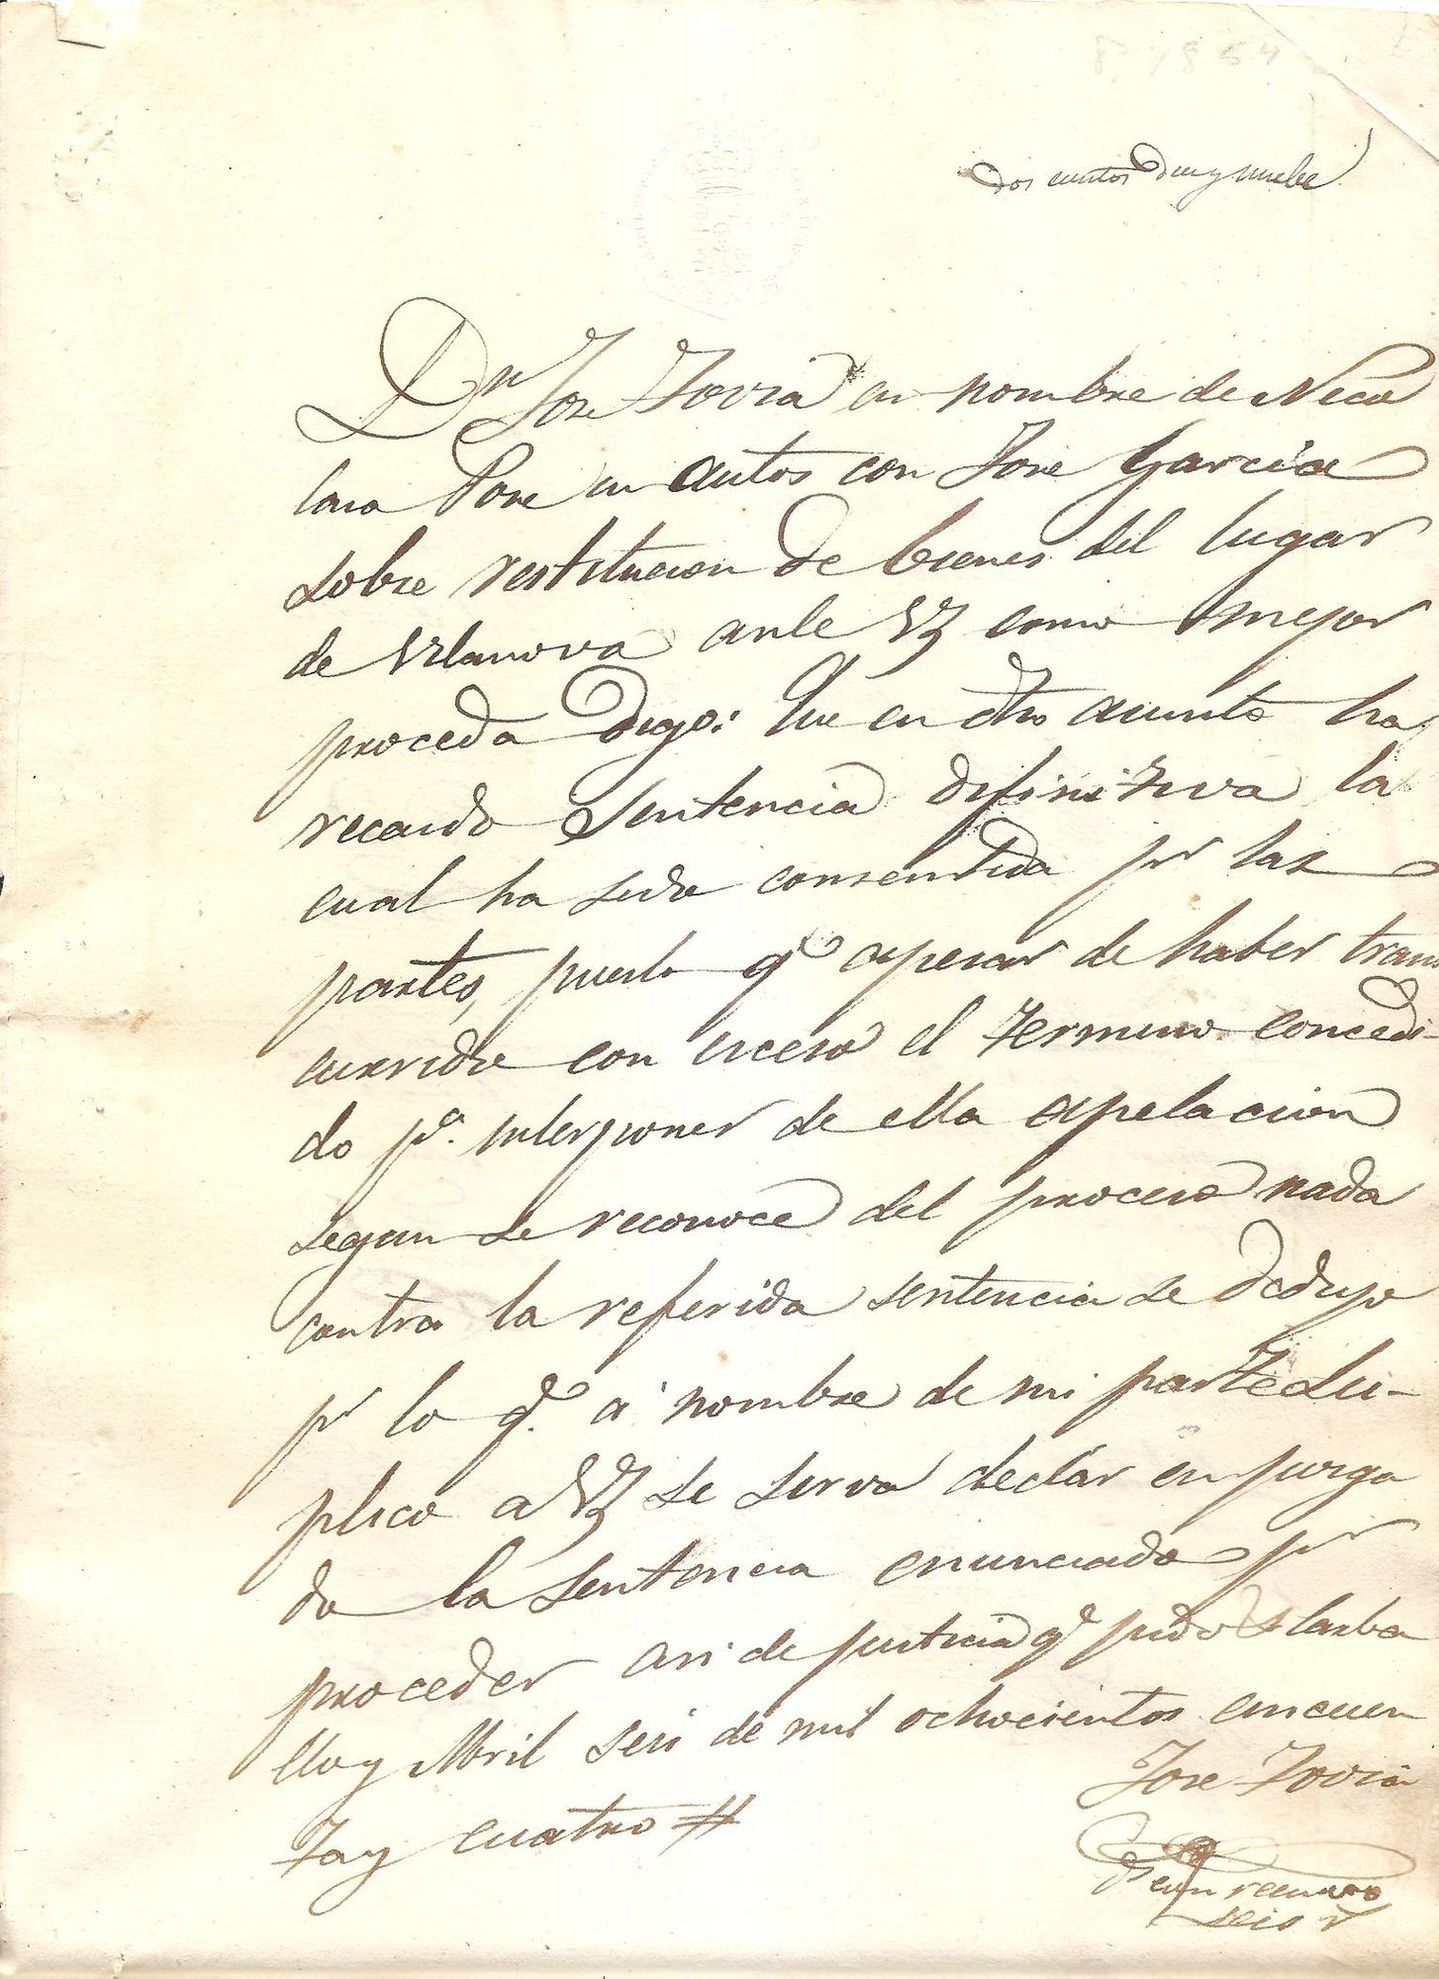 dos cientos diez y nuebe
Dn Jose Tovia en nombre de Nico
lasa Pose en autos con Jose Garcia
sobre restitucion de bienes del lugar
de Vilanova ante V como mejor
proceda Digo: Que en dho asunto ha
recaido Sentencia difinitiva la
cual ha sido consentida pr las
partes, puesto qe apesar de haber trans
currido con exceso el termino concedi-
do pa. interponer de ella apelacion
segun se reconoce del proceso nada
contra la referida sentencia se dedujo
pr lo qe. á nombre de mi parte Su-
plico a V se sirva declar en juzga
do la Sentencia enunciada pr
proceder asi de justicia qe pido Carba
llo y Abril seis de mil ochocientos cincuen
ta y cuatro #
Jose Tovia
seis r